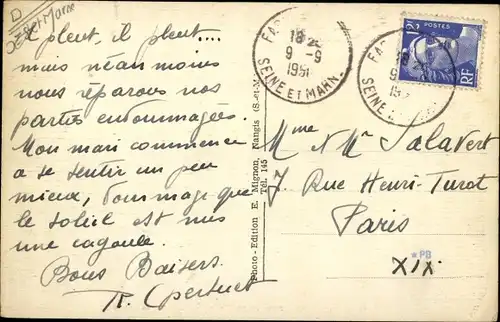 D
Seine et Marne
Il pleut, il pleut....
mais néanmoins
nous réparons nos
pneus endommagés.
Mon mari commence
a se sentir un peu
mieux, dommage que
le soleil est mis
une cagoule.
Bons Baisers
18
9-9
1951
SEINE ET MARNE
POSTES
RF
18
9
SEINE
Photo-Edition E. Mignon, Nangis (S.-et-M.)
Tél. 145
Mme & Mr Salavert
7 Rue Henri-Turot
Paris
*PB
XIX